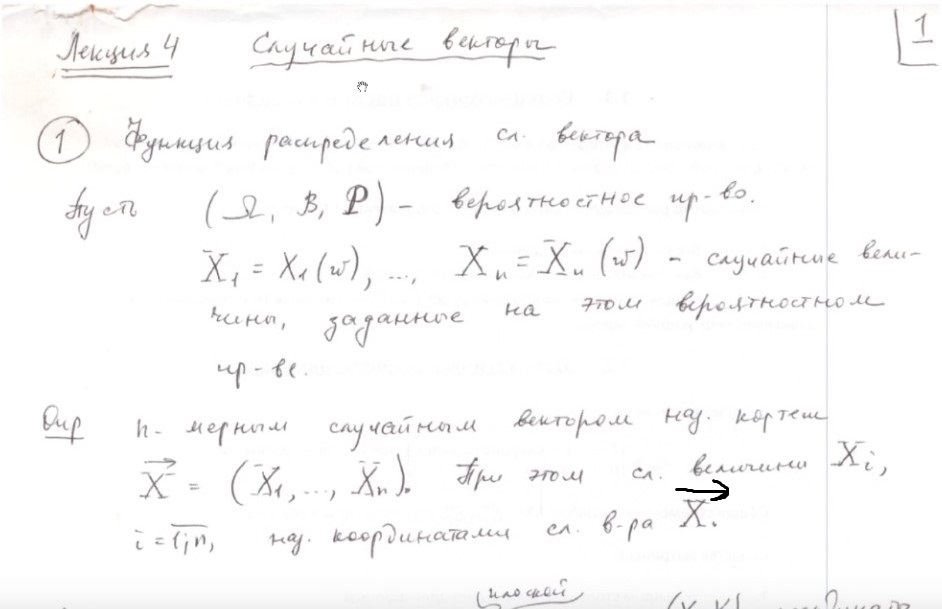 Лекция 4 Случайные векторы 1
① Функция распределения сл. вектора
Пусть (Ω, B, P) - вероятностное пр-во.
X₁ = X₁(w), ..., Xₙ = Xₙ(w) - случайные вели-
чины, заданные на этом вероятностном
пр-ве.
Опр n-мерным случайным вектором наз. кортеж
X⃗ = (X₁, ..., Xₙ). При этом сл. величины Xᵢ,
i = 1,n, наз. координатами сл. в-ра X⃗.
плоской